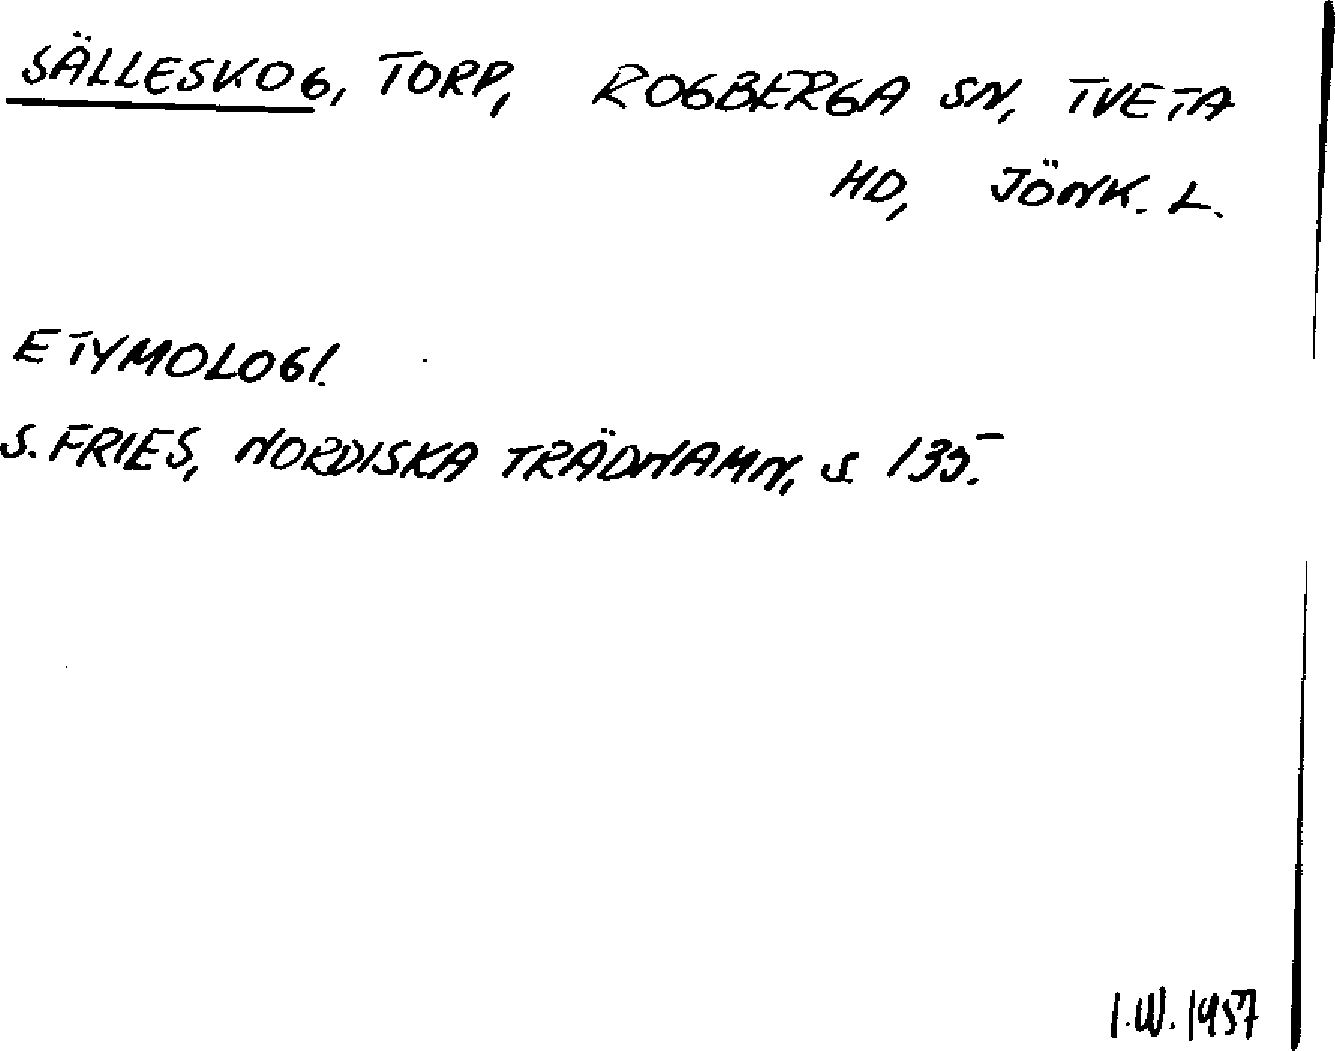 SÄLLESKOG, TORP, ROGBERGA SN, TVETA
HD, JÖNK. L.
ETYMOLOGI.
S. FRIES, NORDISKA TRÄDNAMN, S. 135.
I.W. 1957